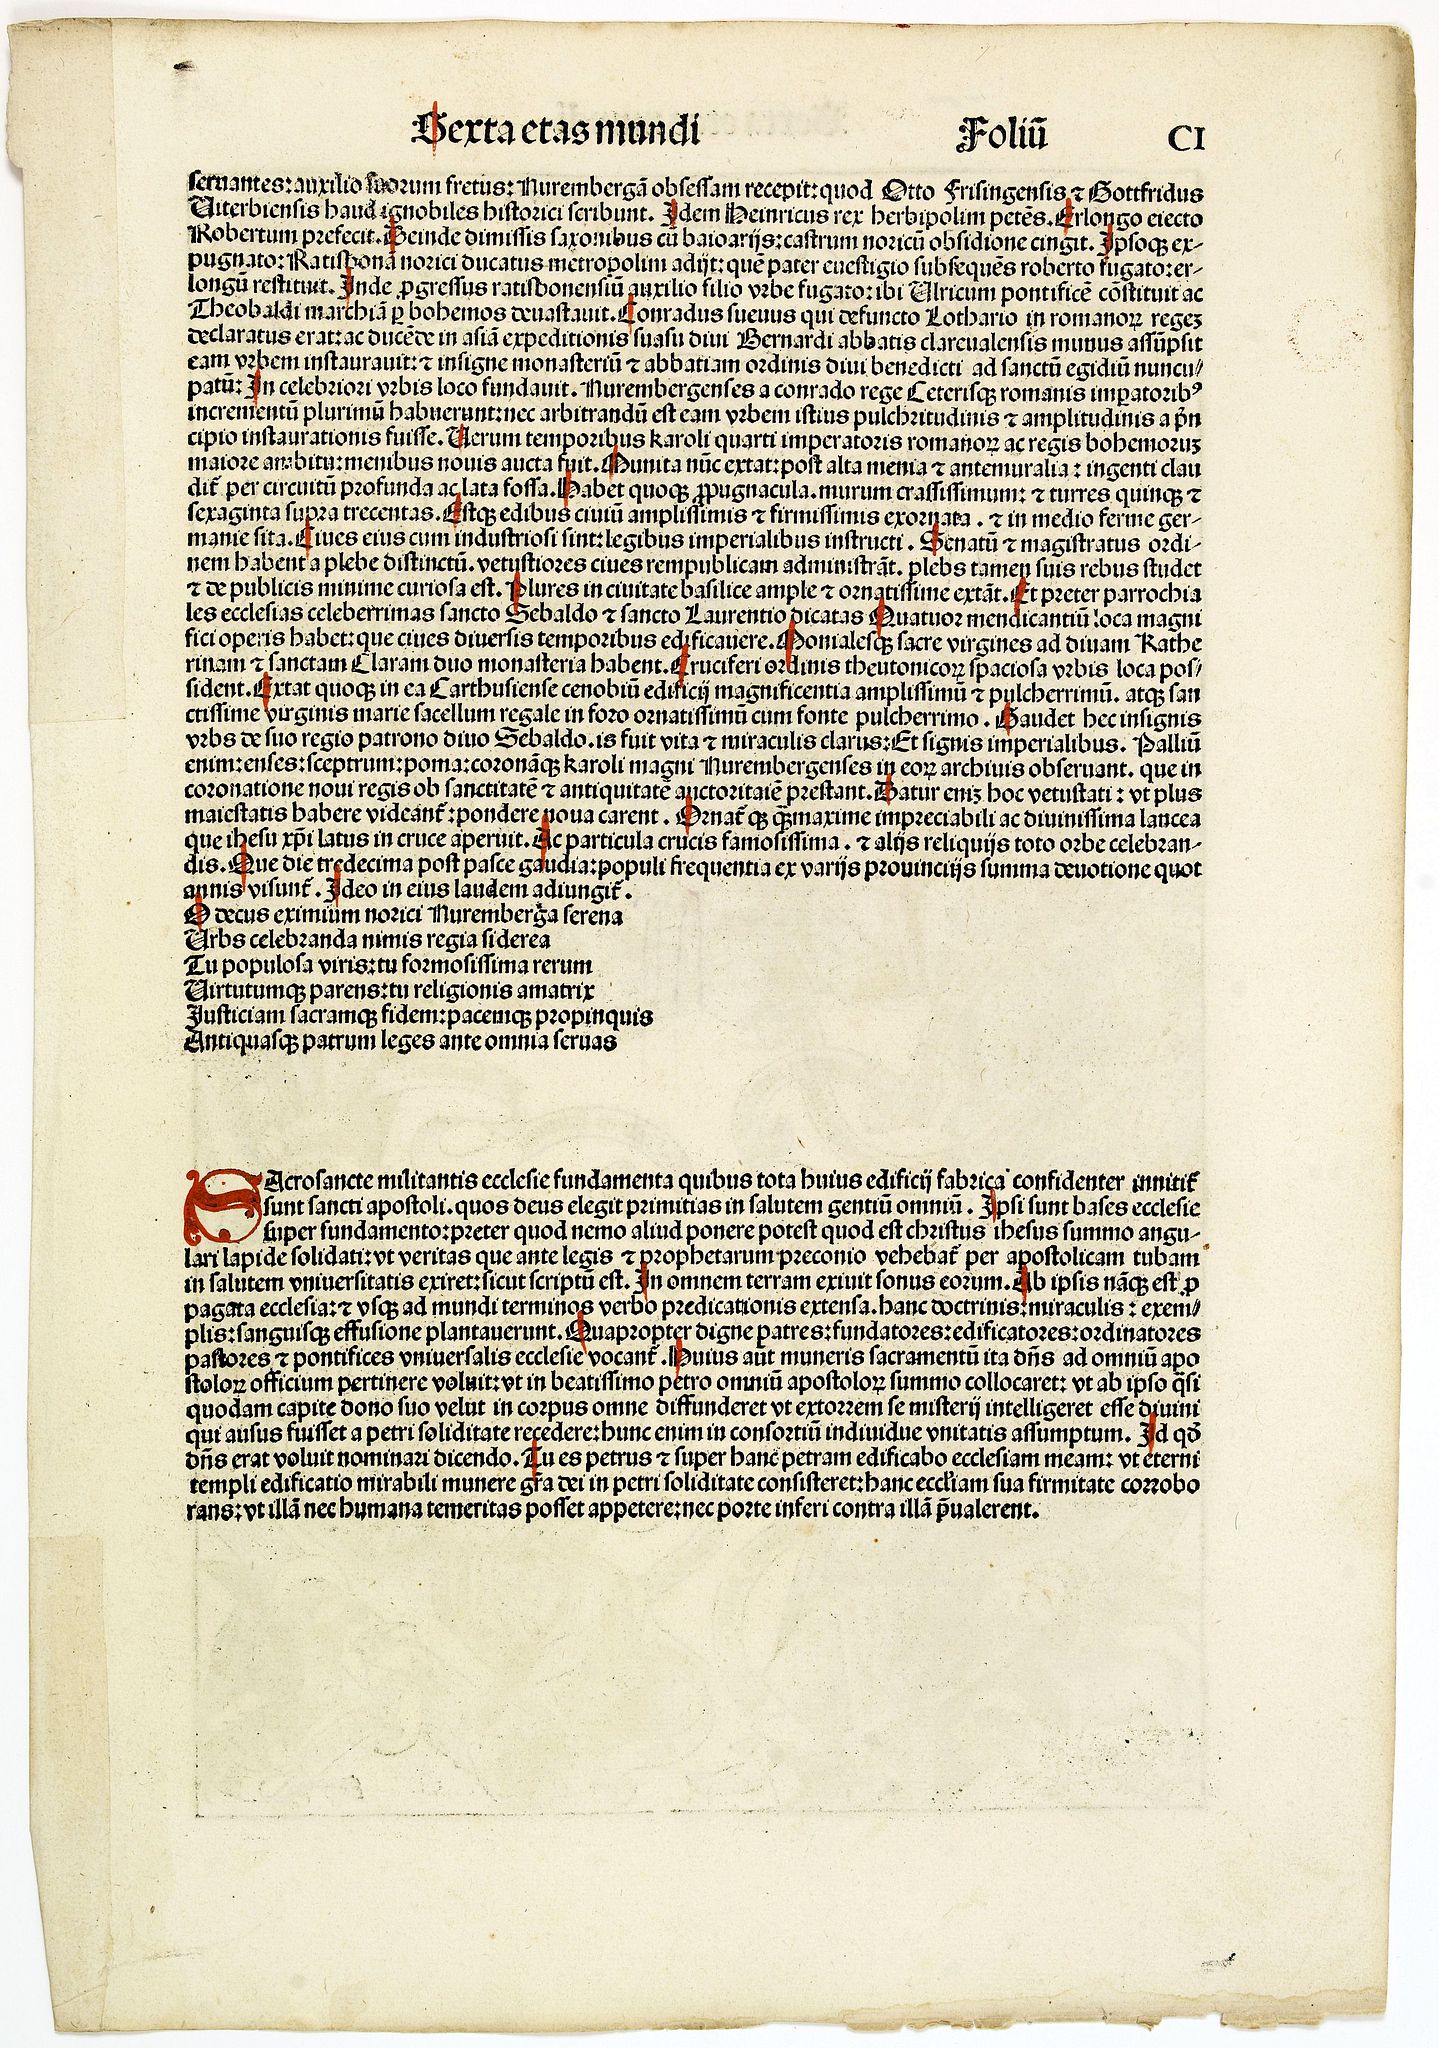 Sexta etas mundi Foliū CI
seruantes: auxilio suorum fretus: Nurembergā obsessam recepit: quod Otto Frisingensis ⁊ Gottfridus
Uiterbiensis haud ignobiles historici scribunt. Idem Heinricus rex herbipolim petēs. Erlongo eiecto
Robertum prefecit. Deinde dimissis saxonibus cū baioarijs: castrum noricū obsidione cingit. Ipsoqꝫ ex-
pugnato: Ratisponā norici ducatus metropolim adijt: quē pater euestigio subsequēs roberto fugato: er-
longū restituit. Inde ꝓgressus ratisbonensiū auxilio filio vrbe fugato: ibi Ulricum pontificē cōstituit ac
Theobaldi marchiā ꝑ bohemos deuastauit. Conradus sueuus qui defuncto Lothario in romanoꝝ regeꝫ
declaratus erat: ac ducēde in asiā expeditionis suasu diui Bernardi abbatis clareualensis munus assūpsit
eam vrbem instaurauit: ⁊ insigne monasteriū ⁊ abbatiam ordinis diui benedicti ad sanctū egidiū nuncu/
patū: In celebriori vrbis loco fundauit. Nurembergenses a conrado rege Ceterisqꝫ romanis imꝑatoribꝰ
incrementū plurimū habuerunt: nec arbitrandū est eam vrbem istius pulchritudinis ⁊ amplitudinis a pͥn
cipio instaurationis fuisse. Uerum temporibus karoli quarti imperatoris romanoꝝ ac regis bohemoruꝫ
maiore ambitu: menibus nouis aucta fuit. Munita nūc extat: post alta menia ⁊ antemuralia: ingenti clau
dit᷑ per circuitū profunda ac lata fossa. Habet quoqꝫ ꝓpugnacula. murum crassissimum: ⁊ turres quinqꝫ ⁊
sexaginta supra trecentas. Estqꝫ edibus ciuiū amplissimis ⁊ firmissimis exornata. ⁊ in medio ferme ger-
manie sita. Ciues eius cum industriosi sint: legibus imperialibus instructi. Senatū ⁊ magistratus ordi-
nem habent a plebe distinctū. vetustiores ciues rempublicam administrāt. plebs tamen suis rebus studet
⁊ de publicis minime curiosa est. Plures in ciuitate basilice ample ⁊ ornatissime extāt. Et preter parrochia
les ecclesias celeberrimas sancto Sebaldo ⁊ sancto Laurentio dicatas Quatuor mendicantiū loca magni
fici operis habet: que ciues diuersis temporibus edificauere. Monialesqꝫ sacre virgines ad diuam Kathe
rinam ⁊ sanctam Claram duo monasteria habent. Cruciferi ordinis theutonicoꝝ spaciosa vrbis loca pos/
sident. Extat quoqꝫ in ea Carthusiense cenobiū edificij magnificentia amplissimū ⁊ pulcherrimū. atqꝫ san
ctissime virginis marie sacellum regale in foro ornatissimū cum fonte pulcherrimo. Gaudet hec insignis
vrbs de suo regio patrono diuo Sebaldo. is fuit vita ⁊ miraculis clarus: Et signis imperialibus. Palliū
enim: enses: sceptrum: poma: coronāqꝫ karoli magni Nurembergenses in eoꝝ archiuis obseruant. que in
coronatione noui regis ob sanctitatē ⁊ antiquitatē auctoritatem prestant. Datur eniꝫ hoc vetustati: vt plus
maiestatis habere videant᷑: pondere noua carent. Ornat᷑ qꝫ qꝫmaxime impreciabili ac diuinissima lancea
que ihesu xp̄i latus in cruce aperuit. Ac particula crucis famosissima. ⁊ alijs reliquijs toto orbe celebran-
dis. Que die tredecima post pasce gaudia: populi frequentia ex varijs prouincijs summa deuotione quot
annis visunt᷑. Ideo in eius laudem adiungit᷑.
O decus eximium norici Nuremberga serena
Urbs celebranda nimis regia siderea
Tu populosa viris: tu formosissima rerum
Uirtutumqꝫ parens: tu religionis amatrix
Justiciam sacramqꝫ fidem: pacemqꝫ propinquis
Antiquasqꝫ patrum leges ante omnia seruas
SAcrosancte militantis ecclesie fundamenta quibus tota huius edificij fabrica confidenter innitit᷑
sunt sancti apostoli. quos deus elegit primitias in salutem gentiū omniū. Ipsi sunt bases ecclesie
super fundamento: preter quod nemo aliud ponere potest quod est christus ihesus summo angu-
lari lapide solidati: vt veritas que ante legis ⁊ prophetarum preconio vehebat᷑ per apostolicam tubam
in salutem vniuersitatis exiret: sicut scriptū est. In omnem terram exiuit sonus eorum. Ab ipsis nāqꝫ est ꝓ
pagata ecclesia: ⁊ vsqꝫ ad mundi terminos verbo predicationis extensa. hanc doctrinis: miraculis: exem/
plis: sanguisqꝫ effusione plantauerunt. Quapropter digne patres: fundatores: edificatores: ordinatores
pastores ⁊ pontifices vniuersalis ecclesie vocant᷑. Huius aūt muneris sacramentū ita dn̄s ad omniū apo
stoloꝝ officium pertinere voluit: vt in beatissimo petro omniū apostoloꝝ summo collocaret: vt ab ipso q̄si
quodam capite dono suo velut in corpus omne diffunderet vt extorrem se misterij intelligeret esse diuini
qui ausus fuisset a petri soliditate recedere: hunc enim in consortiū indiuidue vnitatis assumptum. Id qd̄
dn̄s erat voluit nominari dicendo. Tu es petrus ⁊ super hanc petram edificabo ecclesiam meam: vt eterni
templi edificatio mirabili munere gr̄a dei in petri soliditate consisteret: hanc eccl̄iam sua firmitate corrobo
rans: vt illā nec humana temeritas posset appetere: nec porte inferi contra illā p̄ualerent.